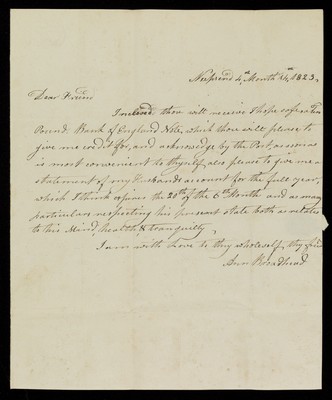 Neepsend 4th Month 14th 1823,
Dear Friend
Inclosed thou will receive I hope safe a Ten
Pound Bank of England Note, which thou wilt please to
give me credit for, and acknowledge by the Post, as soon as
is most convenient to thyself, also please to give me a
statement of my Husbands account for the full year,
which I think expires the 20th of the 6th Month and as many
particulars respecting his present state both as relates
to his Mind, health, & tranquilty,
I am with Love to thy whole self, thy frd
Ann Broadhead